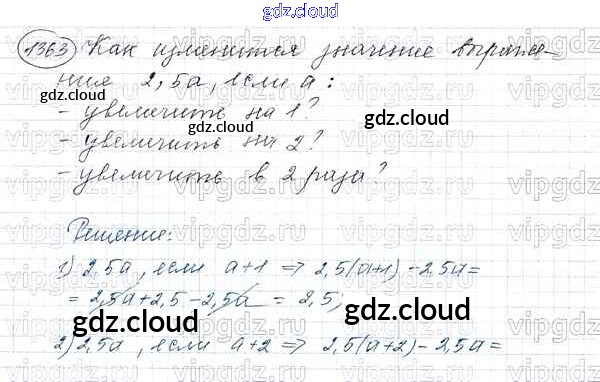 gdz.cloud
1363 Как изменится значение выраже-
ния 2,5a, если a:
gdz.cloud gdz.cloud
- увеличить на 1?
- увеличить на 2?
- увеличить в 2 раза?
Решение:
1) 2,5a, если a+1 => 2,5(a+1) - 2,5a =
= 2,5a + 2,5 - 2,5a = 2,5;
gdz.cloud gdz.cloud
2) 2,5a, если a+2 => 2,5(a+2) - 2,5a =
gdz.cloud